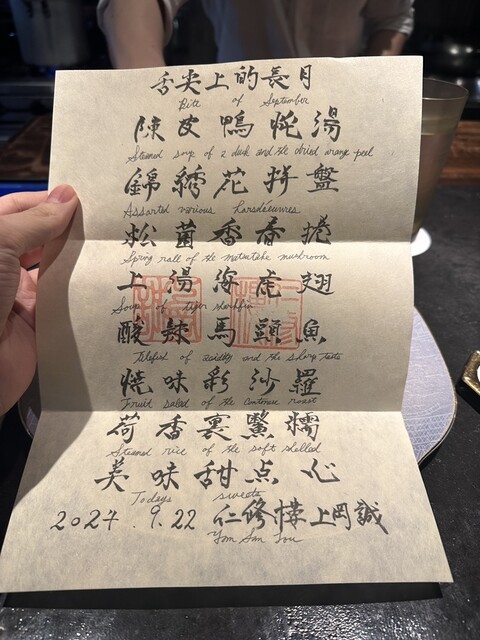 舌尖上的長月
Bite of September
陳皮鴨炖湯
Steamed soup of a duck and the dried orange peel
錦綉花拼盤
Assorted various horsdeeuvres
松菌香春捲
Spring rall of the matsutake mushroom
上湯海虎翅
Soup of tiger sharkfin
酸辣馬頭魚
Tilefish of acidity and the sharp taste
燒味彩沙羅
Fruit salad of the Cantonese roast
荷香裏鱉糯
Steamed rice of the soft shelled
美味甜点心
Todays sweets
2024.9.22 仁修樓上岡誠